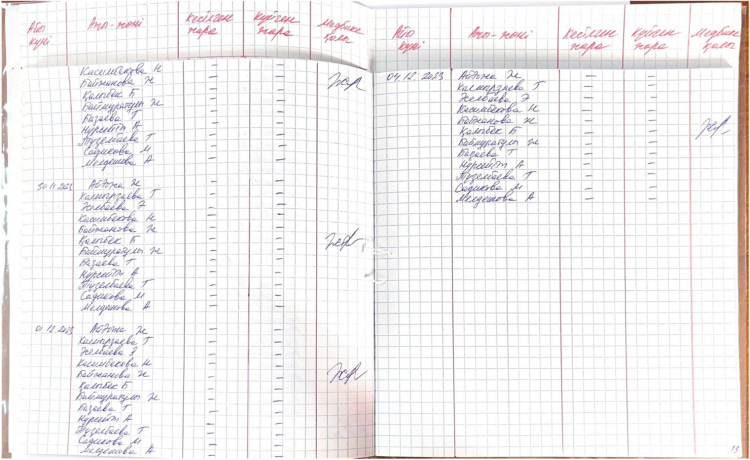 Айо күні Аты-жөні Кесілген жара Күйген жара Медбике қолы
Касимбекова Н - -
Байжанова Ж - -
Қалыбек Б - -
Баймуратұлы Ж - -
Базаева Т - -
Нұрсейіт А - -
Тузелбаева Т - -
Садикова М - -
Мелдешова А - -
30.11.2023 Абдужа Ж - -
Калмырзаева Т - -
Желбаева Э - -
Касимбекова Н - -
Байжанова Ж - -
Қалыбек Б - -
Баймуратұлы Ж - -
Базаева Т - -
Нұрсейіт А - -
Тузелбаева Т - -
Садикова М - -
Мелдешова А - -
01.12.2023 Абдужа Ж - -
Калмырзаева Т - -
Желбаева Э - -
Касимбекова Н - -
Байжанова Ж - -
Қалыбек Б - -
Баймуратұлы Ж - -
Базаева Т - -
Нұрсейіт А - -
Тузелбаева Т - -
Садикова М - -
Мелдешова А - -
Айо күні Аты-жөні Кесілген жара Күйген жара Медбике қолы
04.12.2023 Абдужа Ж - -
Калмырзаева Т - -
Желбаева Э - -
Касимбекова Н - -
Байжанова Ж - -
Қалыбек Б - -
Баймуратұлы Ж - -
Базаева Т - -
Нұрсейіт А - -
Тузелбаева Т - -
Садикова М - -
Мелдешова А - -
13